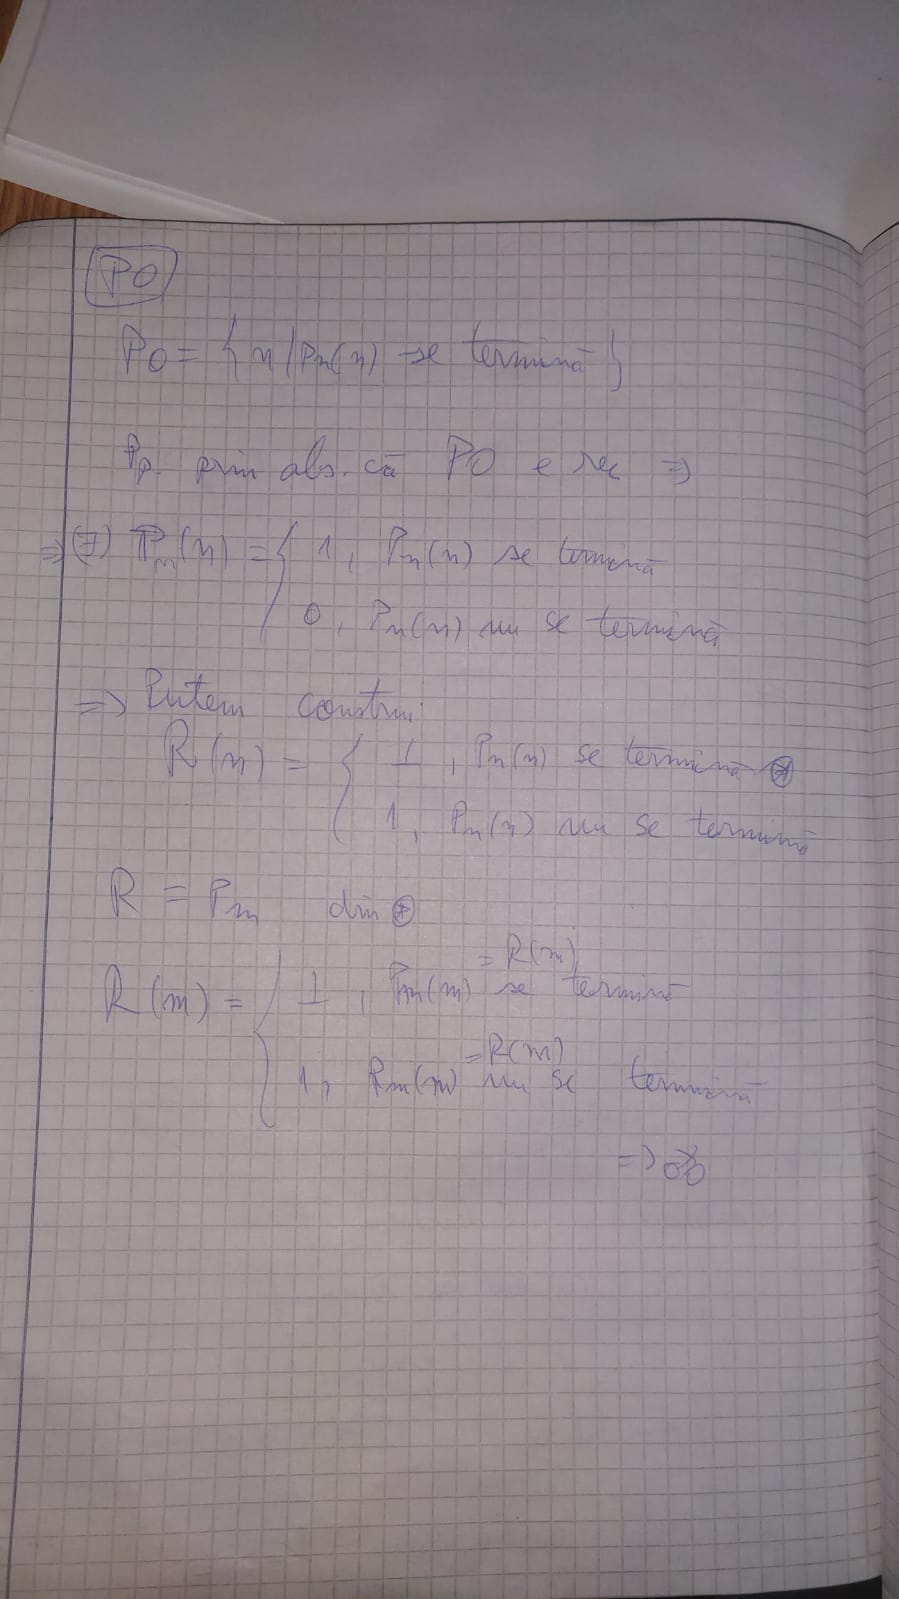 PO
PO = { n / Pn(n) se termină }
Pp. prin abs. că PO e rec =>
=> (∃) Pm(n) = { 1, Pn(n) se termină
0, Pn(n) nu se termină
=> Putem construi
R(n) = { ⊥, Pn(n) se termină ⊛
1, Pn(n) nu se termină
R = Pm din ⊛
= R(m)
R(m) = { ⊥, Pm(m) se termină
= R(m)
1, Pm(m) nu se termină
=>